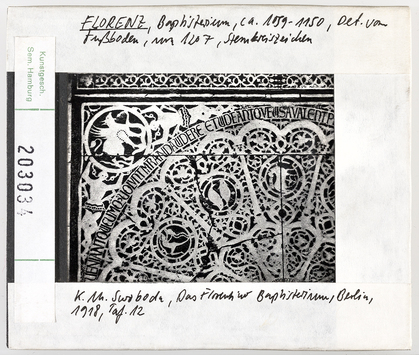 FLORENZ, Baptisterium, ca. 1059-1150, Det. vom
Fußboden, um 1207, Sternkreiszeichen
Kunstgesch.
Sem. Hamburg
203034
K. M. Swoboda, Das Florentiner Baptisterium, Berlin,
1918, Taf. 12